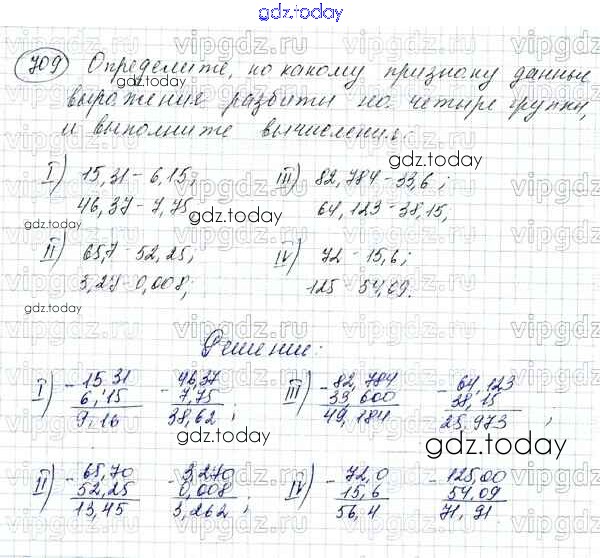 gdz.today
709 Определите, по какому признаку данные
выражения разбиты на четыре группы,
и выполните вычисления:
I) 15,31 - 6,15; III) 82,784 - 33,6;
46,37 - 7,75 64,123 - 38,15,
II) 65,7 - 52,25; IV) 72 - 15,6;
3,27 - 0,008; 125 - 54,09.
Решение:
I) - 15 31 - 46,37 III) - 82,784 - 64,123
6,15 7,75 33,600 38,15
9,16 38,62; 49,184 25,973;
II) - 65,70 - 3,270 IV) - 72,0 - 125,00
52,25 0,008 15,6 54,09
13,45 3,262; 56,4 71,91
vipgdz.ru
gdz.today